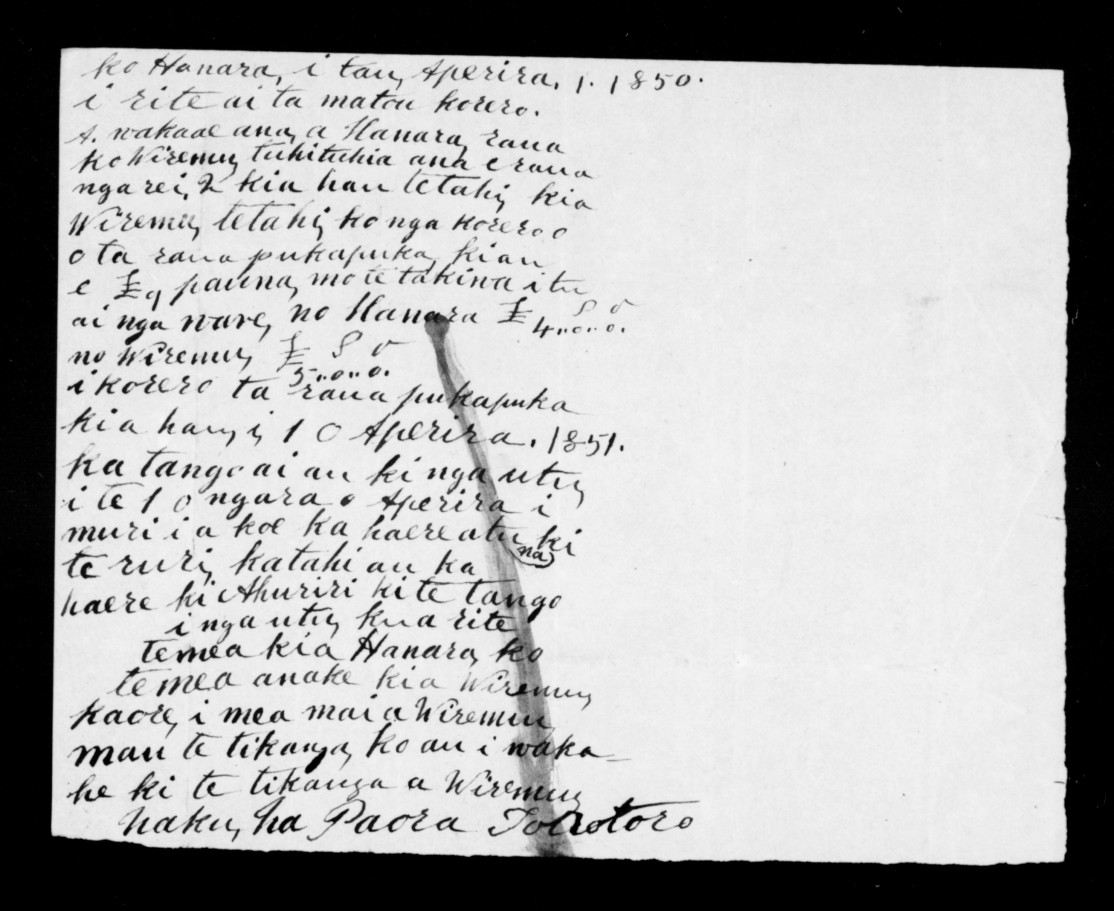 ko Hanara, i tau, Aperira, 1. 1850.
i rite ai ta matou korero.
A. wakaae ana, a Hanara, raua
ko Wiremu, tuhituhia ana e raua
nga rei, 2 kia hau tetahi, kia
Wiremu, tetahi, ko nga korero o
o ta raua pukapuka, kiau
e £9 pauna, mo te takiwa i tu
ai nga ware, no Hanara £4..0..0.
no Wiremu, £5..0..0.
i korero ta raua pukapuka
kia hau, i 10 Aperira. 1851.
ka tango ai au ki nga utu,
i te 10 nga ra o Aperira i
muri i a koe ka haere atu na ki
te ruri, katahi au ka
haere ki Ahuriri ki te tango
i nga utu, kua rite
te mea kia Hanara, ko
te mea anake kia Wiremu,
kaore, i mea mai a Wiremu
mau te tikanga, ko au i waka-
he ki te tikanga a Wiremu,
naku, na Paora Torotoro